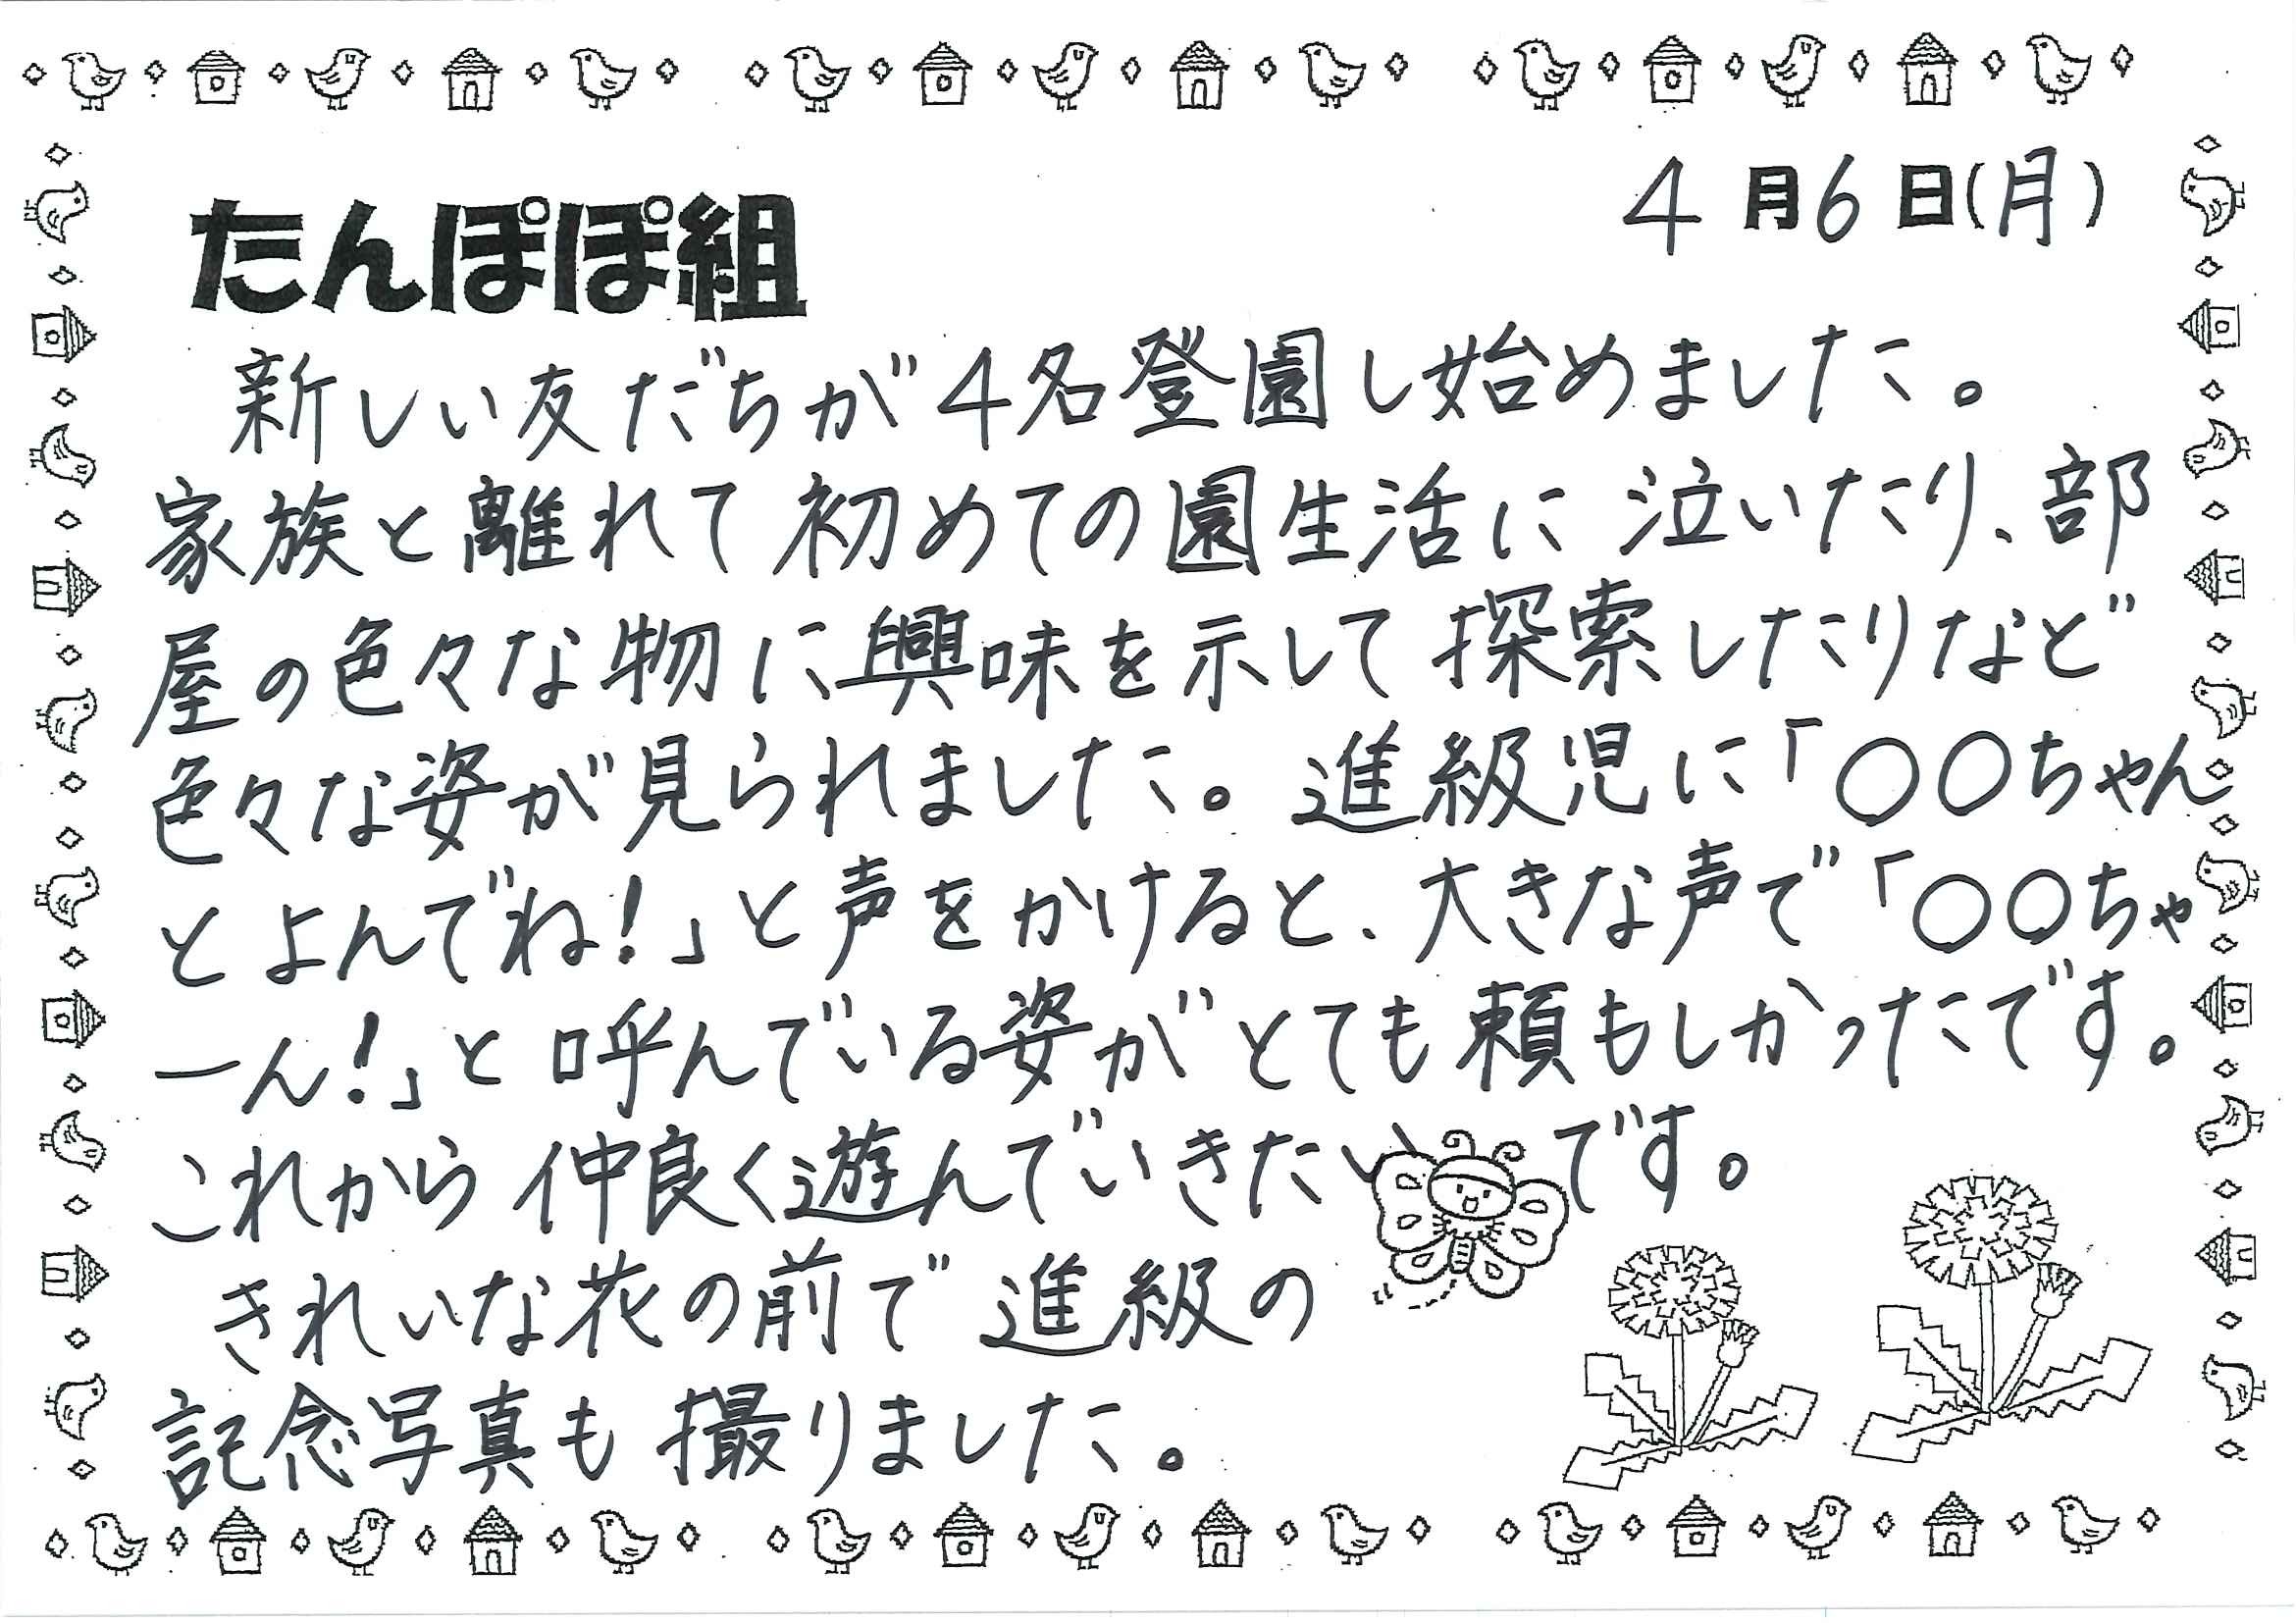 4月6日(月)
たんぽぽ組
新しい友だちが4名登園し始めました。
家族と離れて初めての園生活に泣いたり、部
屋の色々な物に興味を示して探索したりなど
色々な姿が見られました。進級児に「〇〇ちゃん
とよんでね!」と声をかけると、大きな声で「〇〇ちゃ
ーん!」と呼んでいる姿がとても頼もしかったです。
これから仲良く遊んでいきたいです。
きれいな花の前で進級の
記念写真も撮りました。